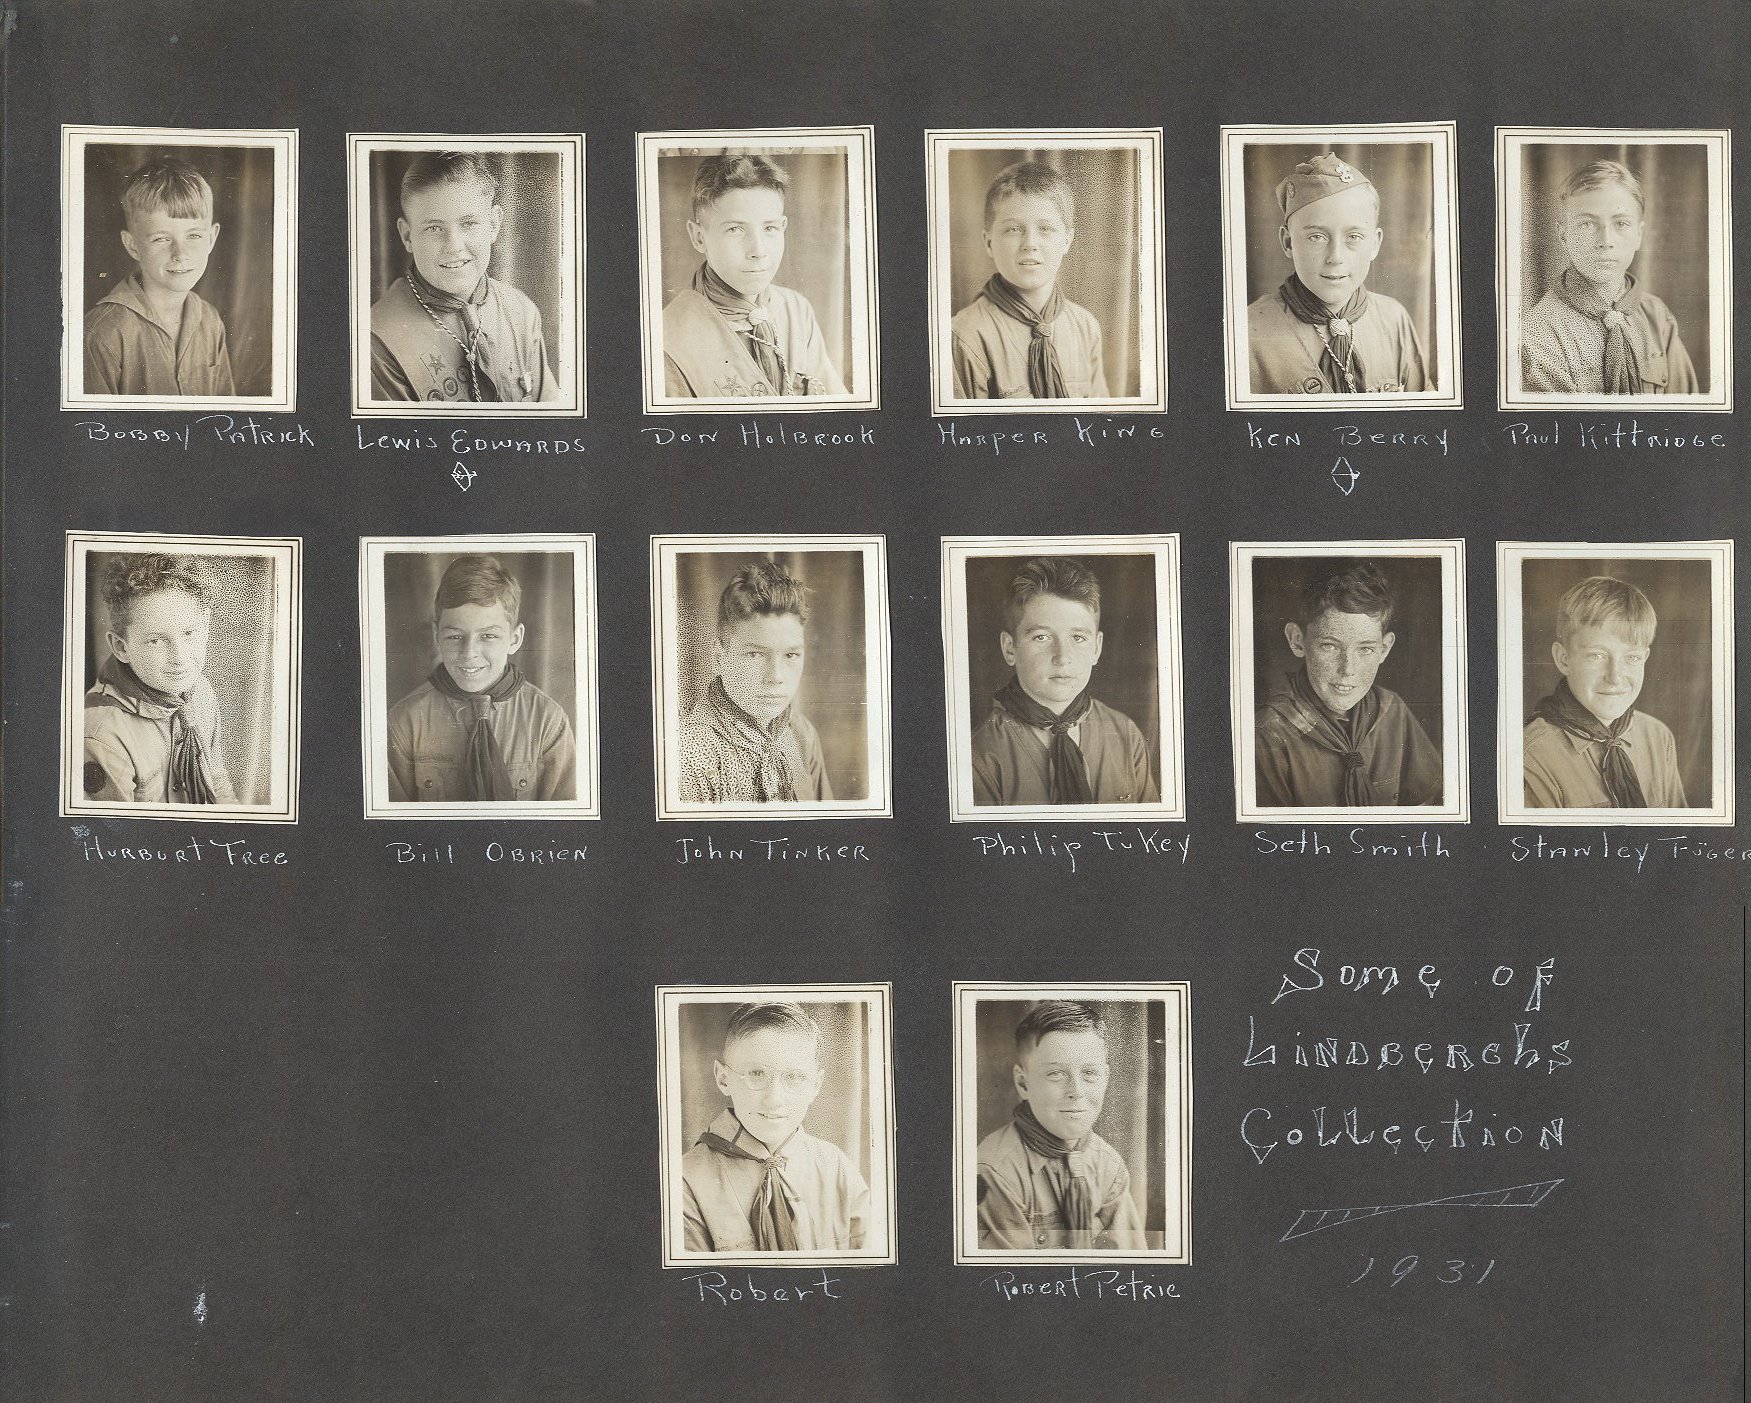 Bobby Patrick Lewis Edwards Don Holbrook Harper King Ken Berry Paul Kittridge
Hurburt Free Bill Obrien John Tinker Philip Tukey Seth Smith Stanley Füger
Some of
Lindberghs
Collection
Robert Robert Petrie 1931